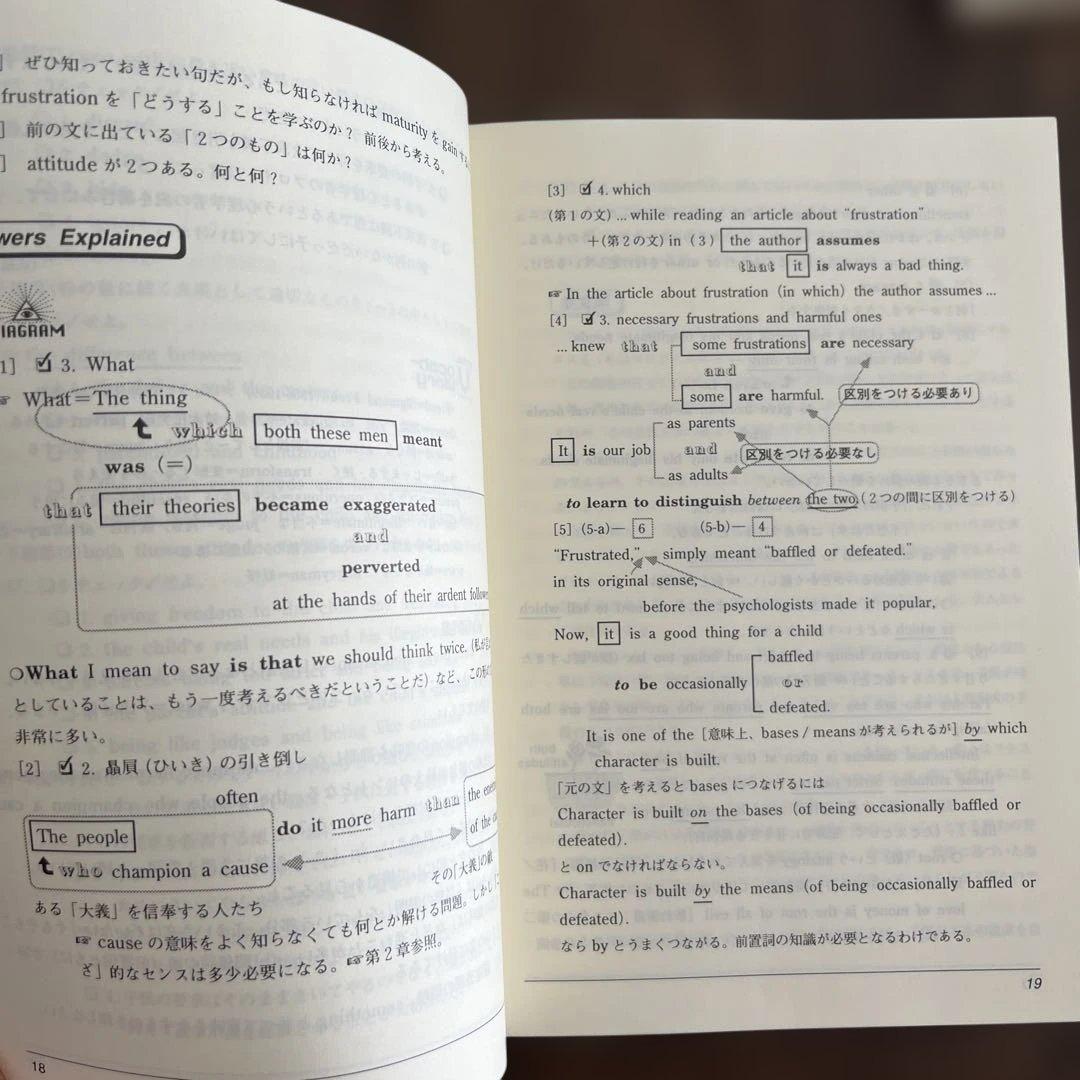 ] ぜひ知っておきたい句だが、もし知らなければ maturity を gain す
frustration を「どうする」ことを学ぶのか？ 前後から考える。
] 前の文に出ている「２つのもの」は何か？
] attitude が２つある。何と何？
wers Explained
IAGRAM
1] 3. What
☞ What＝The thing
which both these men meant
was (＝)
that their theories became exaggerated
and
perverted
at the hands of their ardent follow
○What I mean to say is that we should think twice.
としていることは、もう一度考えるべきだということだ) など、この形
非常に多い。
[2] 2. 贔屓 (ひいき) の引き倒し
often
The people do it more harm than the ene
who champion a cause of the c
その「大義」の敵
ある「大義」を信奉する人たち
☞ cause の意味をよく知らなくても何とか解ける問題。しかし
ざ」的なセンスは多少必要になる。☞第２章参照。
18
[3] 4. which
(第１の文) ... while reading an article about “frustration”
＋(第２の文) in (３) the author assumes
that it is always a bad thing.
☞ In the article about frustration (in which) the author assumes ...
[4] 3. necessary frustrations and harmful ones
... knew that some frustrations are necessary
and
some are harmful. 区別をつける必要あり
as parents
It is our job and 区別をつける必要なし
as adults
to learn to distinguish between the two (２つの間に区別をつける)
[5] (5-a)— 6 (5-b)— 4
“Frustrated,” simply meant “baffled or defeated.”
in its original sense,
before the psychologists made it popular,
Now, it is a good thing for a child
baffled
to be occasionally or
defeated.
It is one of the [意味上、bases / means が考えられるが] by which
character is built.
「元の文」を考えると bases につなげるには
Character is built on the bases (of being occasionally baffled or
defeated).
と on でなければならない。
Character is built by the means (of being occasionally baffled or
defeated).
なら by とうまくつながる。前置詞の知識が必要となるわけである。
19